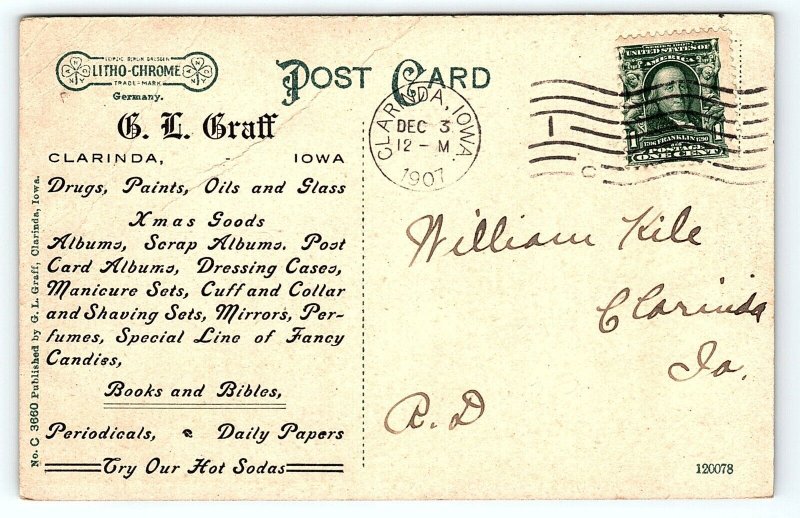 LEIPZIG BERLIN DRESDEN
LITHO-CHROME
TRADE-MARK
Germany.
POST CARD
G. L. Graff
CLARINDA, - IOWA
Drugs, Paints, Oils and Glass
Xmas Goods
Albums, Scrap Albums. Post
Card Albums, Dressing Cases,
Manicure Sets, Cuff and Collar
and Shaving Sets, Mirrors, Per-
fumes, Special Line of Fancy
Candies,
Books and Bibles,
Periodicals, Daily Papers
Try Our Hot Sodas
No. C 3660 Published by G. L. Graff, Clarinda, Iowa.
CLARINDA, IOWA
DEC 3
12 - M
1907
1
C
SERIES 1902
UNITED STATES OF
AMERICA
FRANKLIN
1 POSTAGE 1
ONE CENT
William Kile
Clarinda
Ia.
R. D
120078